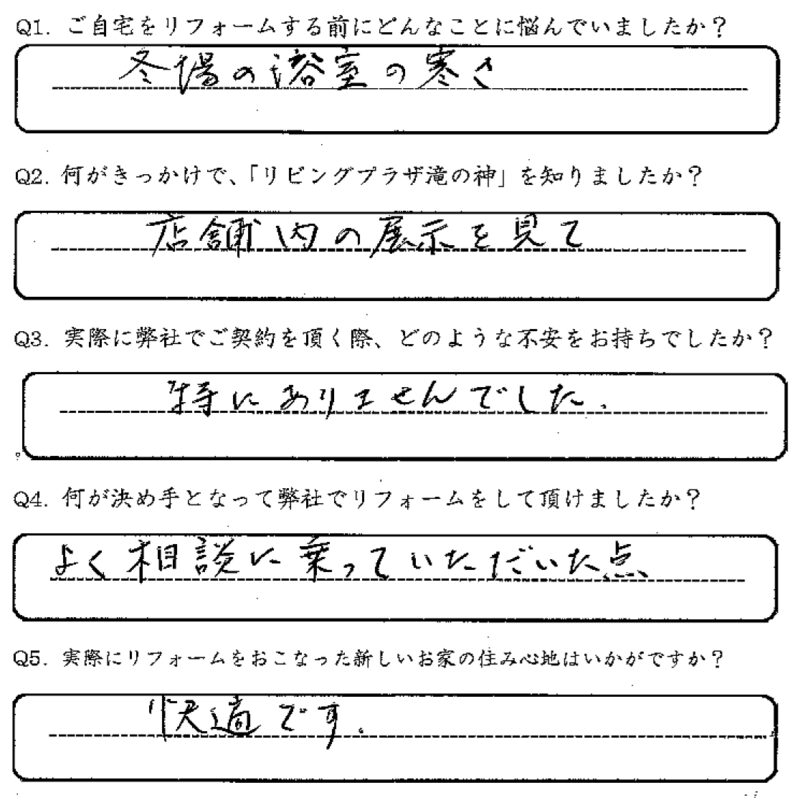 Q1. ご自宅をリフォームする前にどんなことに悩んでいましたか？
冬場の浴室の寒さ
Q2. 何がきっかけで、「リビングプラザ滝の神」を知りましたか？
店舗内の展示を見て
Q3. 実際に弊社でご契約を頂く際、どのような不安をお持ちでしたか？
特にありませんでした.
Q4. 何が決め手となって弊社でリフォームをして頂けましたか？
よく相談に乗っていただいた点、
Q5. 実際にリフォームをおこなった新しいお家の住み心地はいかがですか？
快適です.